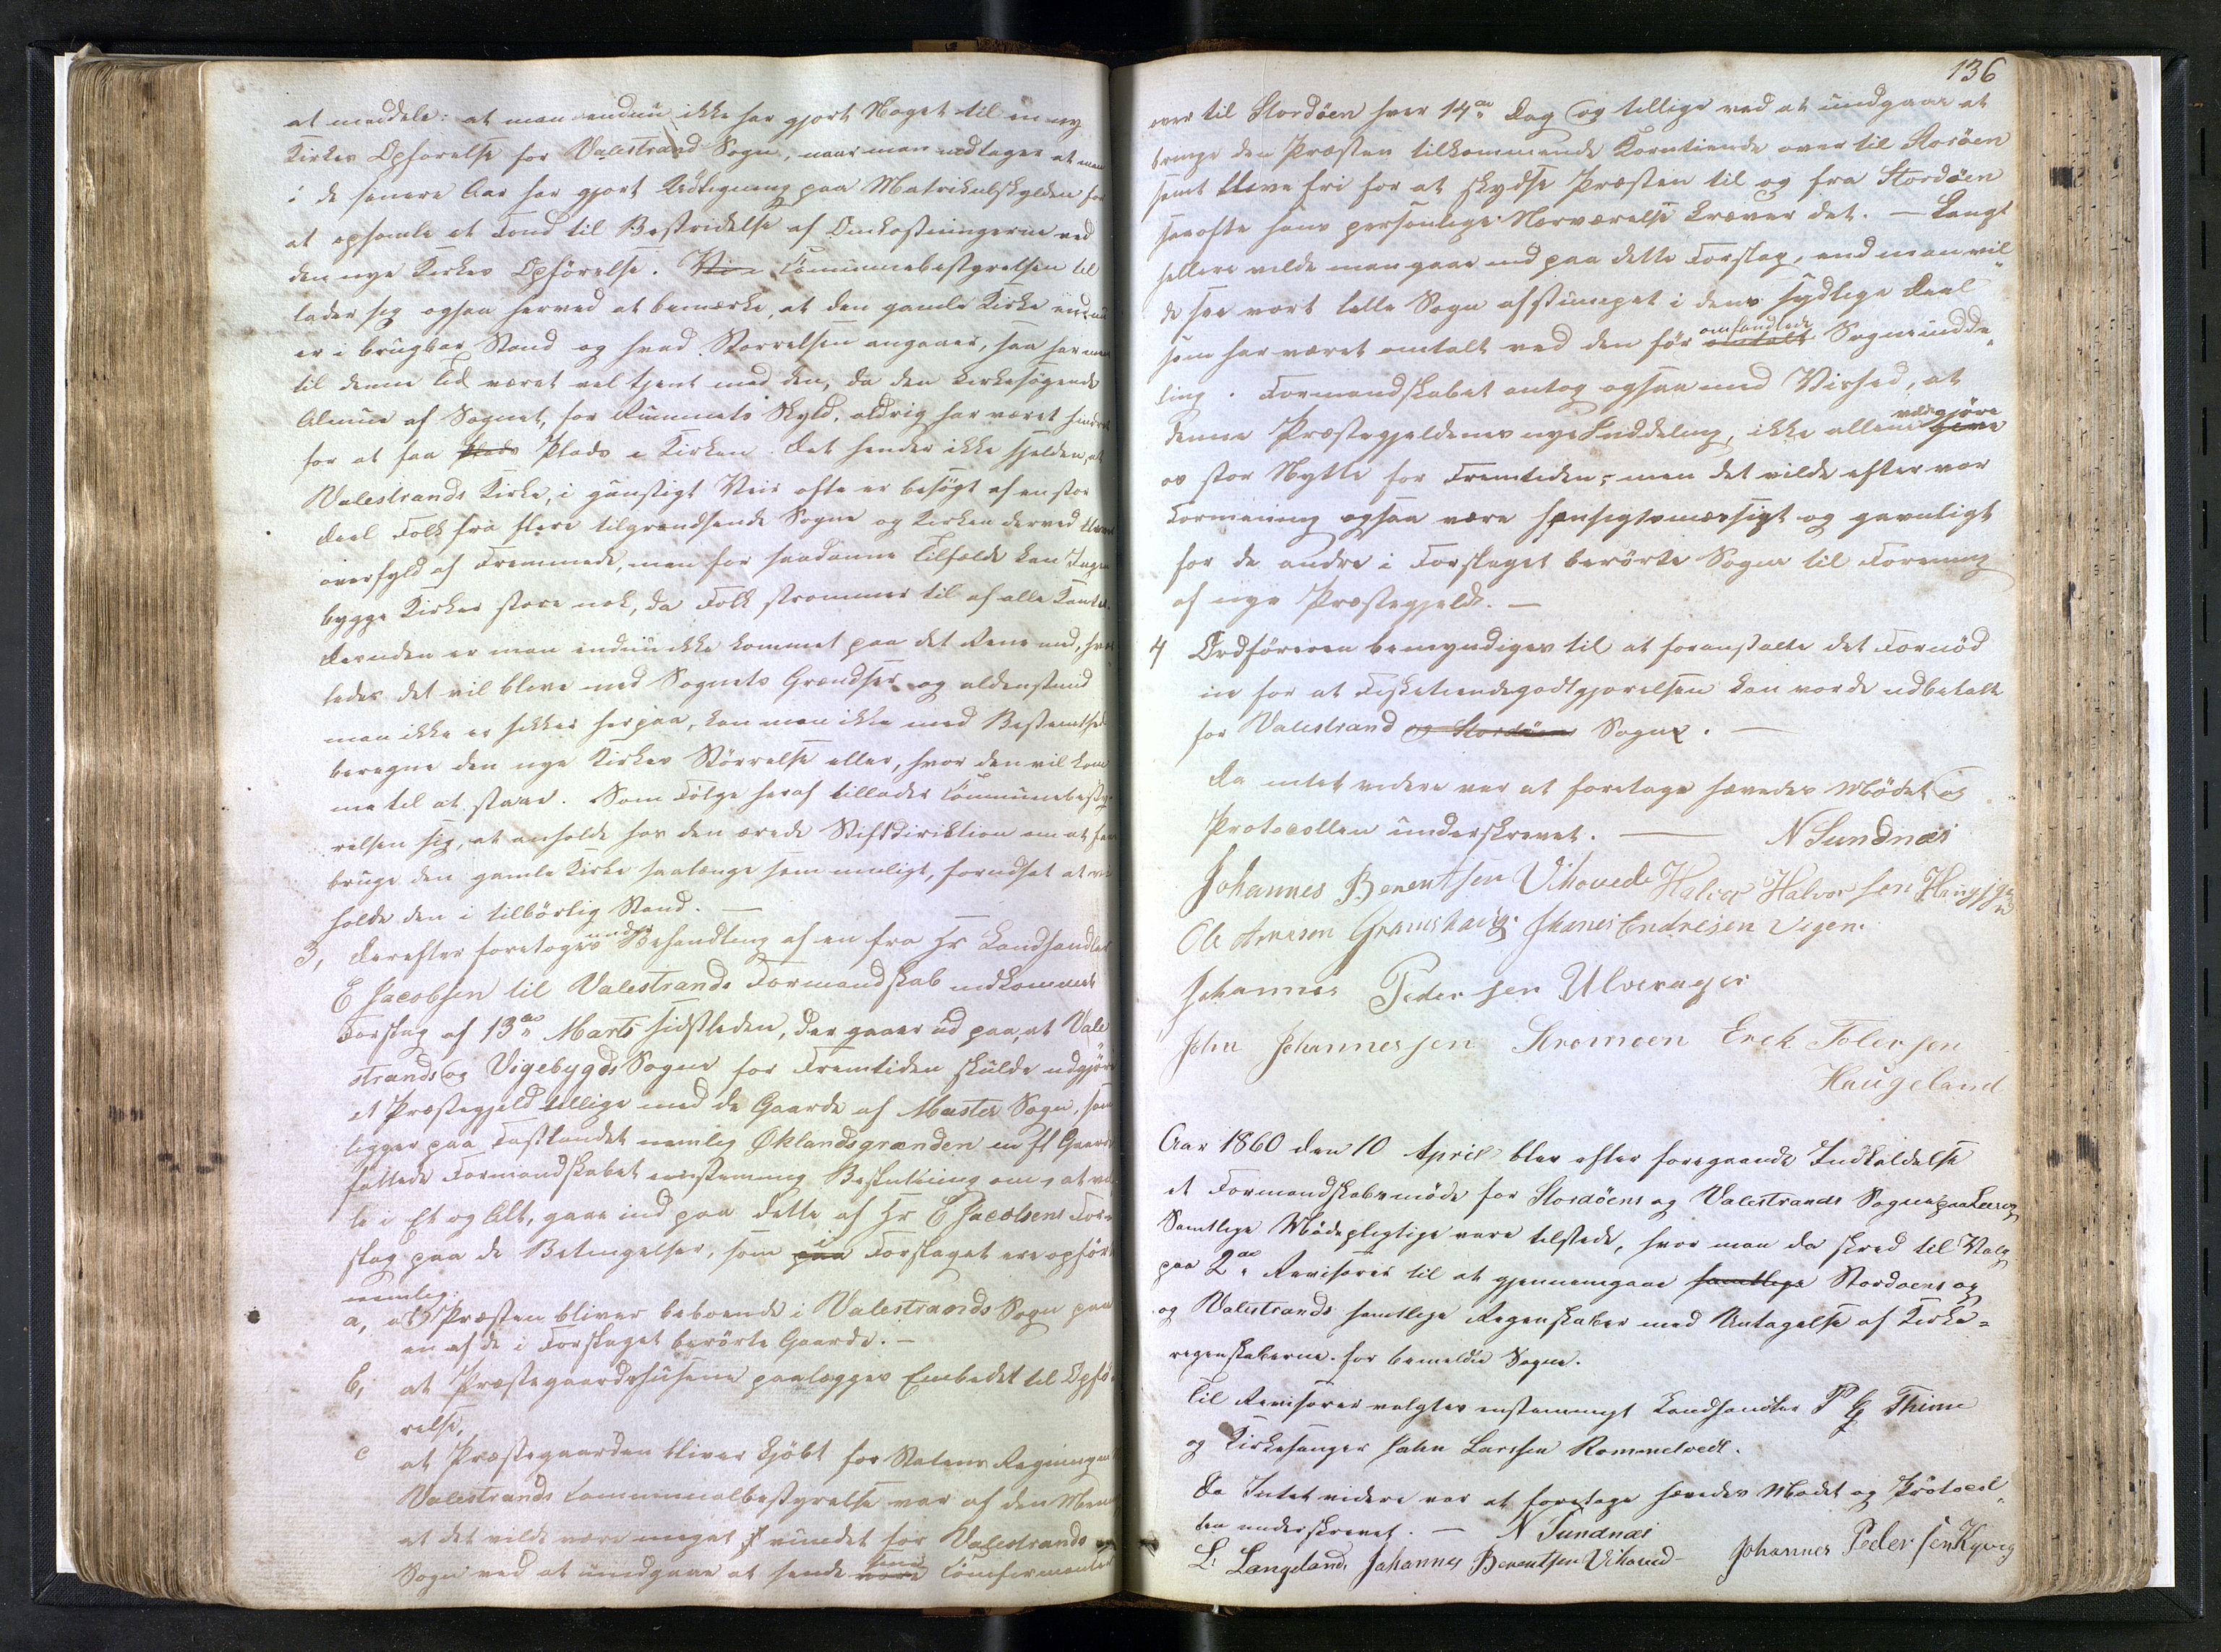 at meddele: at man endnu ikke har gjort Noget til en ny
Kirkes Opførelse for Valestrand Sogn, naar man undtager at man
i de senere Aar har gjort Udligning paa Matrikulskylden for
at opsamle et Fond til Bestridelse af Omkostningerne ved
den nye Kirkes Opførelse. Communebestyrelsen til
lader sig ogsaa herved at bemærke, at den gamle Kirke endnu
er i brugbar Stand og hvad Størrelsen angaaer, saa har man
til denne Tid været vel tjent med den, da den kirkesøgende
Almue af Sognet, for Rummets Skyld, aldrig har været hindret
for at faa Plads Plads i Kirken. Det hender ikke sjelden, at
Valestrands Kirke, i gunstigt Veir ofte er besøgt af en stor
Deel Folk fra flere tilgrændsende Sogne og Kirken derved bliver
overfyld af Fremmede, men for saadanne Tilfælde kan Ingen
bygge Kirker store nok, da Folk strømmer til af alle Kanter.
Desuden er man endnu ikke kommet paa det Rene med, hvor
ledes det vil blive med Sognets Grændser og aldenstund
man ikke er sikker herpaa, kan man ikke med Bestemthed
beregne den nye Kirkes Størrelse eller, hvor den vil kom
me til at staae. Som Følge heraf tillader Communebesty
relsen sig, at anholde hos den ærede Stiftdirektion om at faa
bruge den gamle Kirke saalænge som muligt, forudsat at vi
holde den i tilbørlig Stand. —
3, Derefter foretoges under Behandling af en fra Hr Landhandler
E Jacobsen til Valestrands Formandskab indkommet
Forslag af 13de Marts sidstleden, der gaaer ud paa, at Vale
strands og Vigebygds Sogne for Fremtiden skulde udgjøre
et Præstegjeld tillige med de Gaarde af Moster Sogn, som
ligger paa Fastlandet nemlig Øklandsgrænden
fattede Formandskabet eenstemmig Beslutning om, at vil
le i Et og Alt, gaae ind paa dette af Hr E Jacobsens For
slag paa de Betingelser, som paa i Forslaget ere opført
nemlig:
a, at Præsten bliver beboende i Valestrands Sogn paa
en af de i Forslaget berørte Gaarde. —
b, at Præstegaardshusene paalægges Embedet til Opfø
relse,
c at Præstegaarden bliver kjøbt for Statens Regning
Valestrands Communalbestyrelse var af den Mening
at det vilde være meget vundet for Valestrands
Sogn ved at undgaae at sende sine Confirmanter
136
over til Stordøen hver 14de Dag og tillige ved at undgaae at
bringe den Præsten tilkommende Korntiende over til Storøen
samt blive fri for at skydse Præsten til og fra Stordøen
saaofte hans personlige Nærværelse kræver det. — Langt
hellere vilde man gaae ind paa dette Forslag, end man vil
de see vort lille Sogn afstumpet i dens sydlige Deel
som har været omtalt ved den før omtalt omhandlede Sogneindde
ling. Formandskabet antog ogsaa med Vished, at
denne Præstegjeldenes nye Inddeling, ikke allene vilde gjøre
os stor Nytte for Fremtiden, men det vilde efter vor
Formening ogsaa være hensigtsmæssigt og gavnligt
for de andre i Forslaget berørte Sogne til Forening
af nye Præstegjeld. —
4 Ordføreren bemyndiges til at foranstalte det Fornød
ne for at Fisketiendegodtgjørelsen kan vorde udbetalt
for Valestrand og Stordøens Sogn. —
Da intet videre var at foretage hævedes Mødet og
Protocollen underskrevet. — N Sundnæs
Johannes Berentsen Vihovede Halvor Halvorsen
Ole Arnesen Graneshaug. Jhanes Endresen Vigen.
Johannes Pedersen Ulverager
John Johannessen Strømøen Erek Tolevsen
Haugeland
Aar 1860 den 10 April blev efter foregaaende Indkaldelse
et Formandskabsmøde for Stordøens og Valestrands Sogne paa Lervig
Samtlige Mødepligtige vare tilstede, hvor man da skred til Valg
paa 2de Revisorer til at gjennemgaae samtlige Stordøens og
og Valestrands samtlige Regnskaber med Untagelse af Kirke=
regnskaberne for bemeldte Sogne.
Til Revisorer valgtes enstemmigt Landhandler P G Thime
og Kirkesanger John Larssen Rommetvedt.
Da Intet videre var at foretage hævedes Mødet og Protocol
len underskrevet. — N Sundnæs
L. Langeland. Johannes Berentsen Vihoved— Johannes Pedersen Kyvig